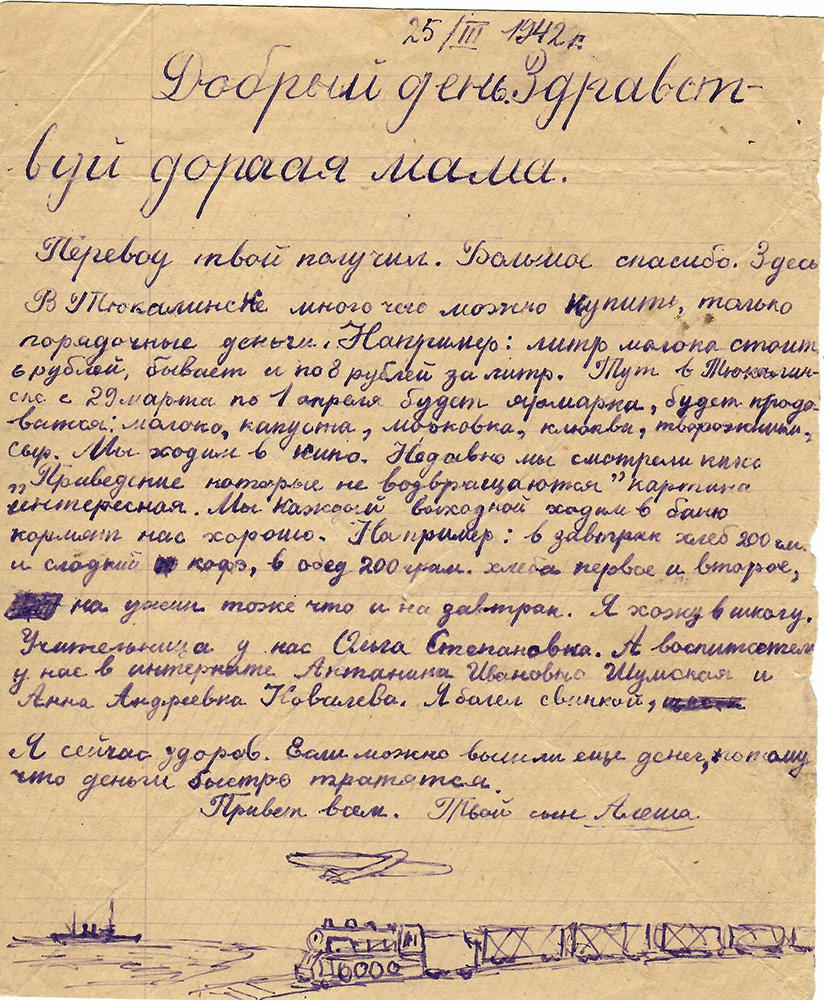 25/III 1942 г.
Добрый день. Здравст-
вуй доргая мама.
Перевод твой получил. Большое спасибо. Здесь
В Тюкалинске много чего можно купить, только
порядочные деньги. Например: литр молока стоит
6 рублей, бывает и по 8 рублей за литр. Тут в Тюкалин-
ске с 29 марта по 1 апреля будет ярмарка, будет прода-
ватся: молоко, капуста, морковка, клюква,
сыр. Мы ходим в кино. Недавно мы смотрели кино
„Приведение которые не водвращаются" картина
интересная. Мы каждый выходной ходим в баню
кормят нас хорошо. Например: в завтрак хлеб 200 гм.
и сладкий кофэ, в обед 200 грам. хлеба первое и второе,
на ужин тоже что и на завтрак. Я хожу в школу.
Учительница у нас Ольга Степановна. А воспитатели
у нас в интернате Антанина Ивановна Шумская и
Анна Андреевка Ковалева. Я болел свинкой,
Я сейчас здоров. Если можно вышли еще денег, потому
что деньги быстро тратятся.
Привет всем. Твой сын Алеша